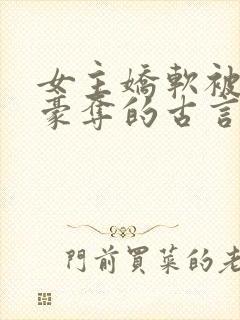 女主嬌軟被
豪奪的古言
門前買菜的老